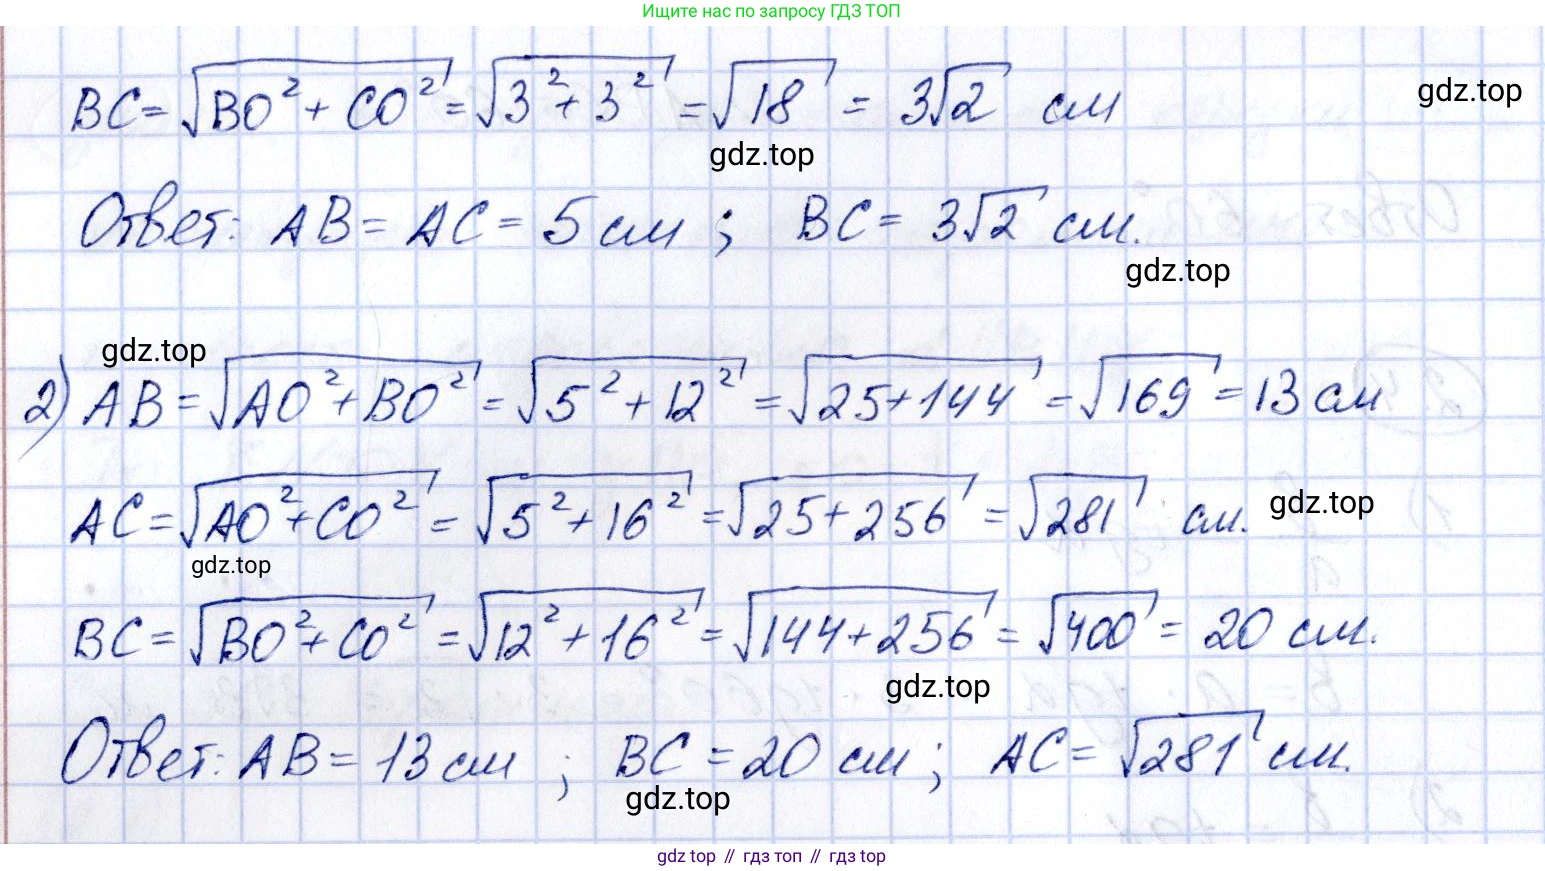 Ищите нас по запросу ГДЗ ТОП
BC = √(BO² + CO²) = √(3² + 3²) = √18 = 3√2 см
gdz.top
gdz.top
Ответ: AB = AC = 5 см ; BC = 3√2 см.
gdz.top
gdz.top
2) AB = √(AO² + BO²) = √(5² + 12²) = √(25 + 144) = √169 = 13 см
AC = √(AO² + CO²) = √(5² + 16²) = √(25 + 256) = √281 см.
gdz.top
gdz.top
BC = √(BO² + CO²) = √(12² + 16²) = √(144 + 256) = √400 = 20 см.
gdz.top
Ответ: AB = 13 см ; BC = 20 см ; AC = √281 см.
gdz.top
gdz top // гдз топ // gdz top